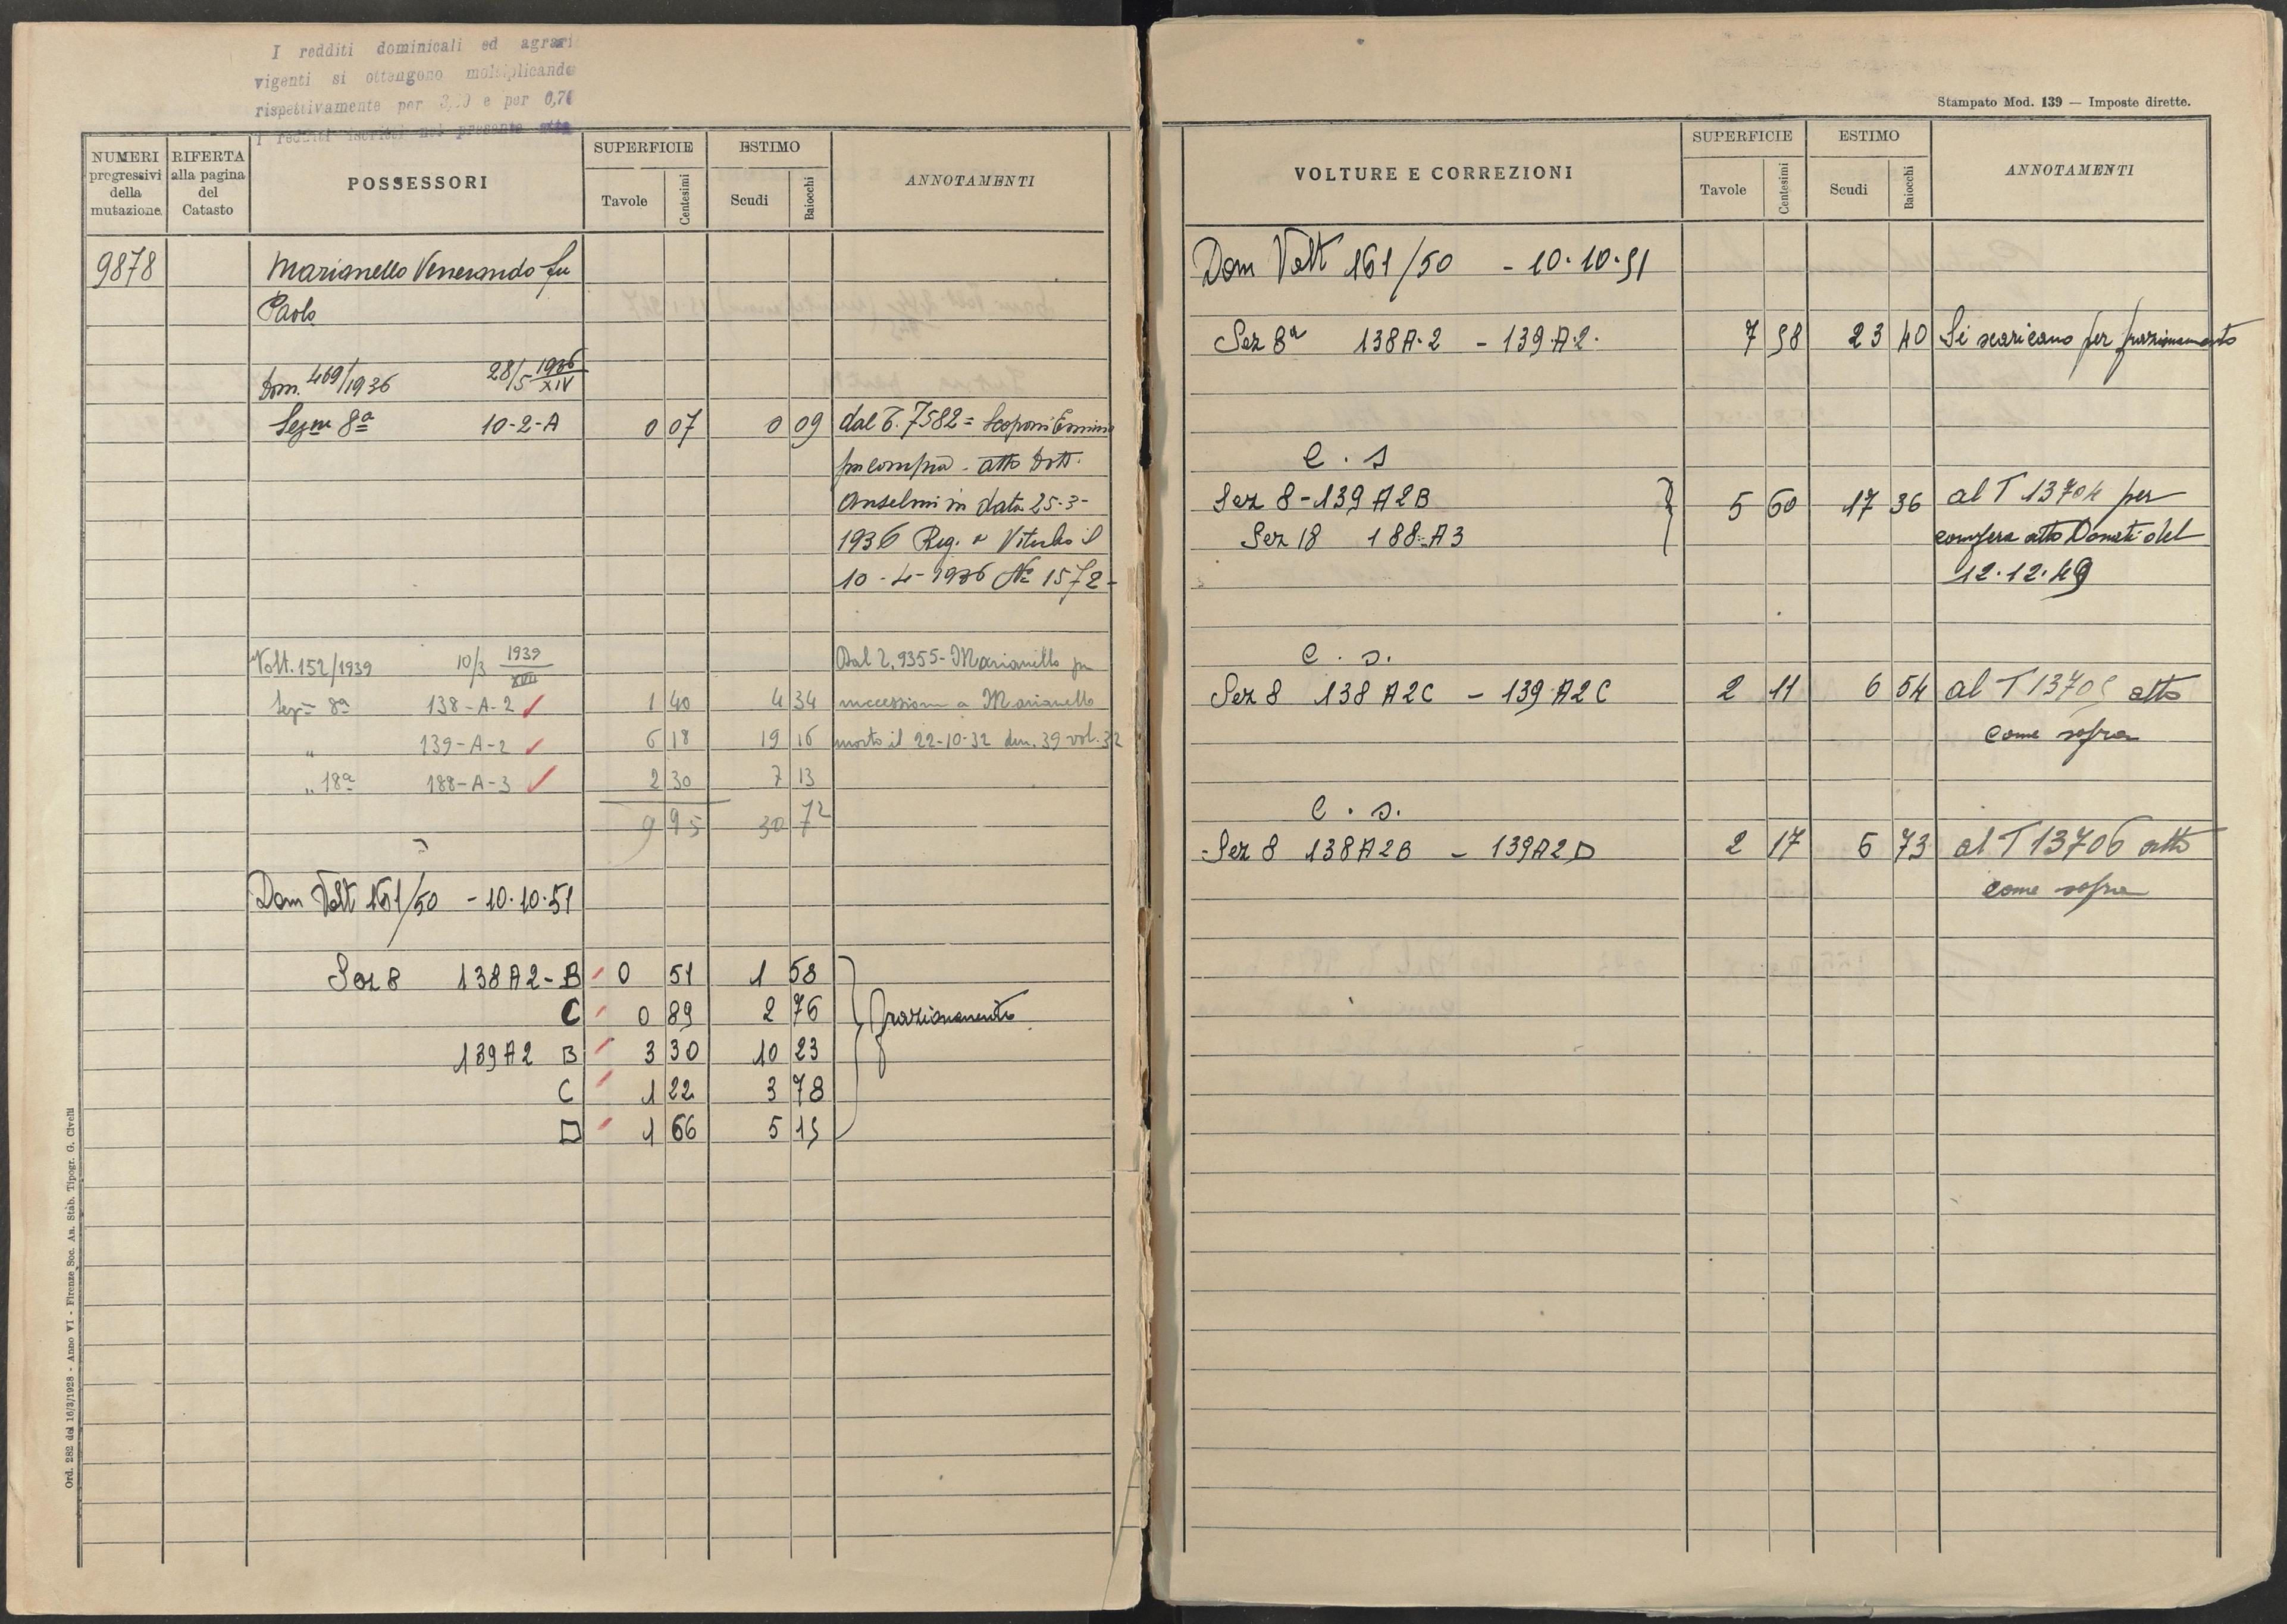 I redditi dominicali ed agrari
vigenti si ottengono moltiplicando
rispettivamente per e per 0,70
i redditi iscritti nel presente
NUMERI progressivi della mutazione
RIFERTA alla pagina del Catasto
POSSESSORI
SUPERFICIE
Tavole Centesimi
ESTIMO
Scudi Baiocchi
ANNOTAMENTI
9878 Marianello Venerando fu
Paolo
Dom. 469/1936 28/5 1936 XIV
Sezne 8a 10-2-A 0 07 0 09 dal T. 7582 = Scoponi Erminio
per compra - atto Dott.
Anselmi in data 25-3-
1936 Reg. a Viterbo il
10-4-1936 No 1572-
Volt. 152/1939 10/3 1939 XVII Dal T. 9355 - Marianello per
Sez= 8a 138-A-2 1 40 4 34 successione a Marianello
" 139-A-2 6 18 19 16 morto il 22-10-32 den. 39 vol. 32
" 18a 188-A-3 2 30 7 13
9 95 30 72
Dom Volt 161/50 - 10.10.51
Sez 8 138A2-B 0 51 1 58
C 0 89 2 76 frazionamento
139A2 B 3 30 10 23
C 1 22 3 78
D 1 66 5 15
Ord. 282 del 16/3/1928 - Anno VI - Firenze Soc. An. Stab. Tipogr. G. Civelli
Stampato Mod. 139 — Imposte dirette.
VOLTURE E CORREZIONI
SUPERFICIE
Tavole Centesimi
ESTIMO
Scudi Baiocchi
ANNOTAMENTI
Dom Volt 161/50 - 10.10.51
Sez 8a 138A.2 - 139.A.2. 7 58 23 40 Si scaricano per frazionamento
C. S
Sez 8-139 A2B 5 60 17 36 al T 13704 per
Sez 18 188-A3 compera atto Donati del
12.12.49
C. S.
Sez 8 138 A2C - 139 A2C 2 11 6 54 al T 13705 atto
come sopra
C. S.
Sez 8 138A2B - 139A2D 2 17 6 73 al T 13706 atto
come sopra